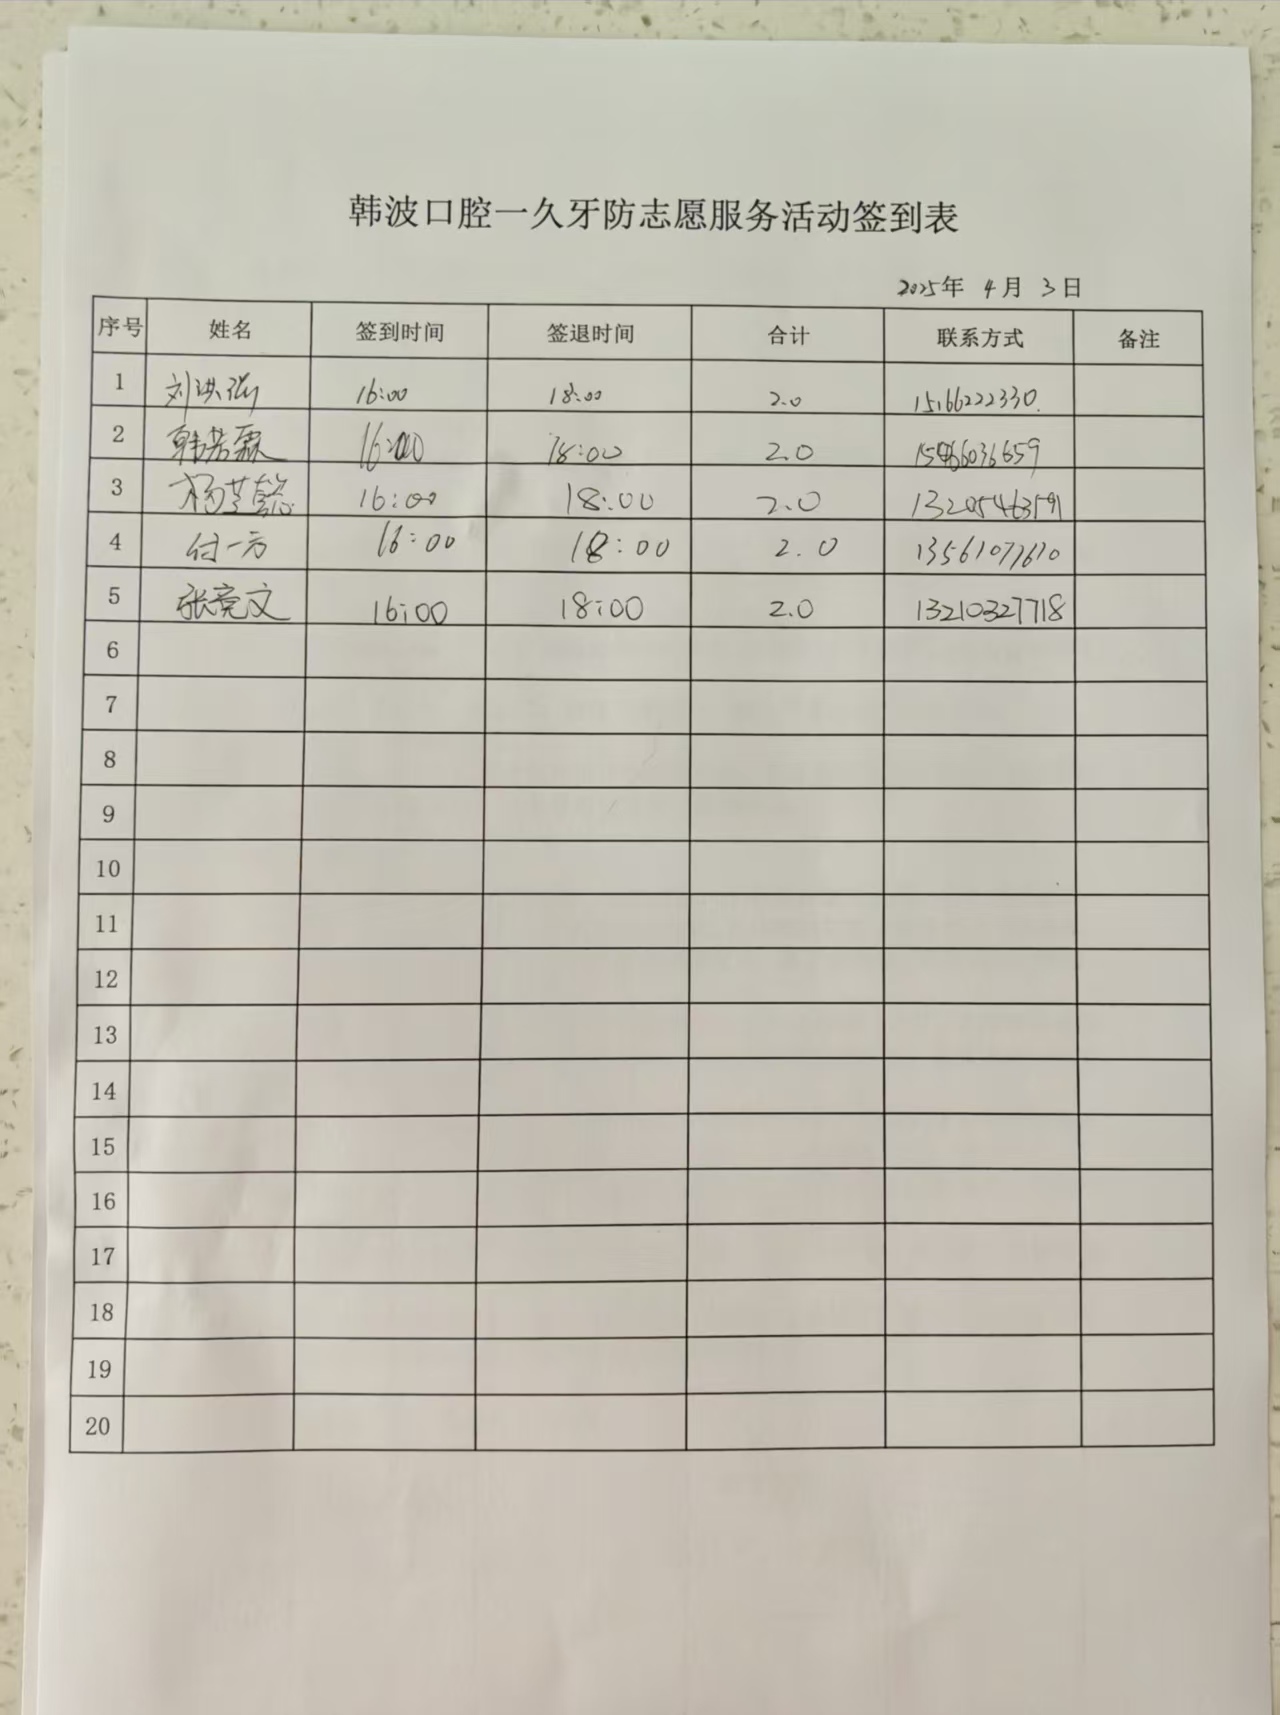 韩波口腔一久牙防志愿服务活动签到表
2025年 4月 3日
序号 姓名 签到时间 签退时间 合计 联系方式 备注
1 刘洪瑞 16:00 18:00 2.0 15166222330.
2 韩若霖 16:00 18:00 2.0
3 杨芝懿 16:00 18:00 2.0 13205463591
4 付一方 16:00 18:00 2.0 13561077610
5 张亮文 16:00 18:00 2.0 13210327718
6
7
8
9
10
11
12
13
14
15
16
17
18
19
20